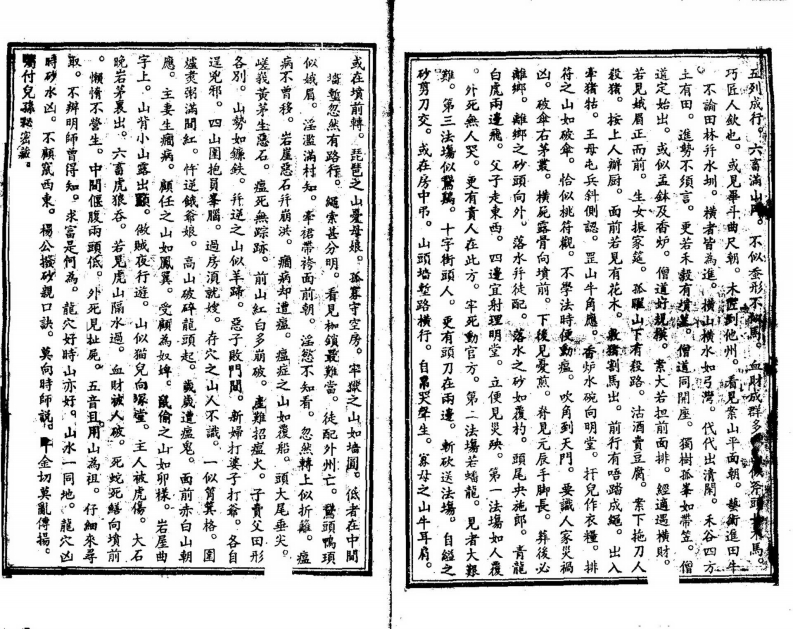 五列成行。六畜滿山。不似奎形不似馬。血財成群多。斧頭木馬。
巧匠人欽也。或見畢斗曲尺朝。木匠到他州。看見案山平面朝。藝術進田牛
不論田林幷水圳。橫者皆為進。橫山橫水如弓灣。代代出清閑。禾谷四方
土有田。進勢不須言。更若禾穀有墳蓋。僧道同開座。獨樹孤峯如帶笠。僧
道定始出。或似盂鉢及香炉。僧道好規模。案大若担前面排。經過遇橫財。
若見娥眉正面前。生女振家筵。孤曜山下有殺路。沽酒賣豆腐。案下拖刀人
殺猪。按上人辦厨。面前若見有花木。教猪割馬出。前行有唔踏成繩。出入
牽猪牯。王母屯兵斜側認。罡山牛角應。香炉水碗向明堂。扞兒作衣糧。排
符之山如破傘。恰似桃符觀。不學法時便動瘟。吹角到天門。要識人家災禍
凶。破傘右茅叢。橫屍露骨向墳前。下後見憂煎。脊見元辰手脚長。葬後必
離鄉。離鄉之砂頭向外。落水幷徒配。落水之砂如覆杓。頭尾央拖郎。青龍
白虎兩邊飛。父子走東西。四邊宜射理明堂。立便見災殃。第一法塲如人覆
。外死無人哭。更有貴人在此方。牢死動官方。第二法塲若蟠龍。見者大艱
難。第三法塲似鵞鴨。十字街頭人。更有頭刀在兩邊。斬砍送法塲。自縊之
砂剪刀交。或在房中吊。山頭墙塹路橫行。自帛哭聲生。寡母之山牛耳肩。
或在墳前轉。琵琶之山憂母娘。孤寡守空房。牢獄之山如墙圓。低者在中間
墙塹忽然有路行。繩索甚分明。看見枷鎖最難當。徒配外州亡。鵞頭鴨頸
似娥眉。淫濫滿村知。牽裙帶袴面前朝。淫慾不知羞。忽然轉上似折離。瘟
病不曾移。岩崖惡石幷崩洪。癩病却遭瘟。瘟症之山如覆船。頭大尾垂尖。
嵯峩黃茅生惡石。瘟死無踪跡。前山紅白多崩破。虛難招瘟火。子賣父田形
各別。山勢如鐮鉄。幷逆之山似羊蹄。惡子敗門閭。新婦打婆子打爺。各自
逞兇邪。四山圍抱員峯腦。過房須就嫂。存穴之山人不識。一似筲箕格。圍
爐煑粥滿間紅。忤逆餓爺娘。高山破碎龍頭起。歲歲遭瘟鬼。面前赤白山朝
應。主妻生癩病。顧任之山如鳳翼。受顧為奴婢。鼠偷之山如卯様。岩屋曲
字上。山背小山露出顯。做賊夜行遊。山似猫兒向塚堂。主人被虎傷。大石
晚岩茅裏出。六畜虎狼吞。若見虎山隔水過。血財被人破。死蛇死鱔向墳前
。懶惰不營生。中間偃腹兩頭低。外死見扯屍。五音且用山為祖。仔細來尋
取。不辨明師曾得知。求富是何為。龍穴好時山亦好。山水一同地。龍穴凶
時砂水凶。不顧竄西東。楊公撥砂親口訣。莫向時師說。千金切莫亂傳揚。
囑付兒孫秘密藏。